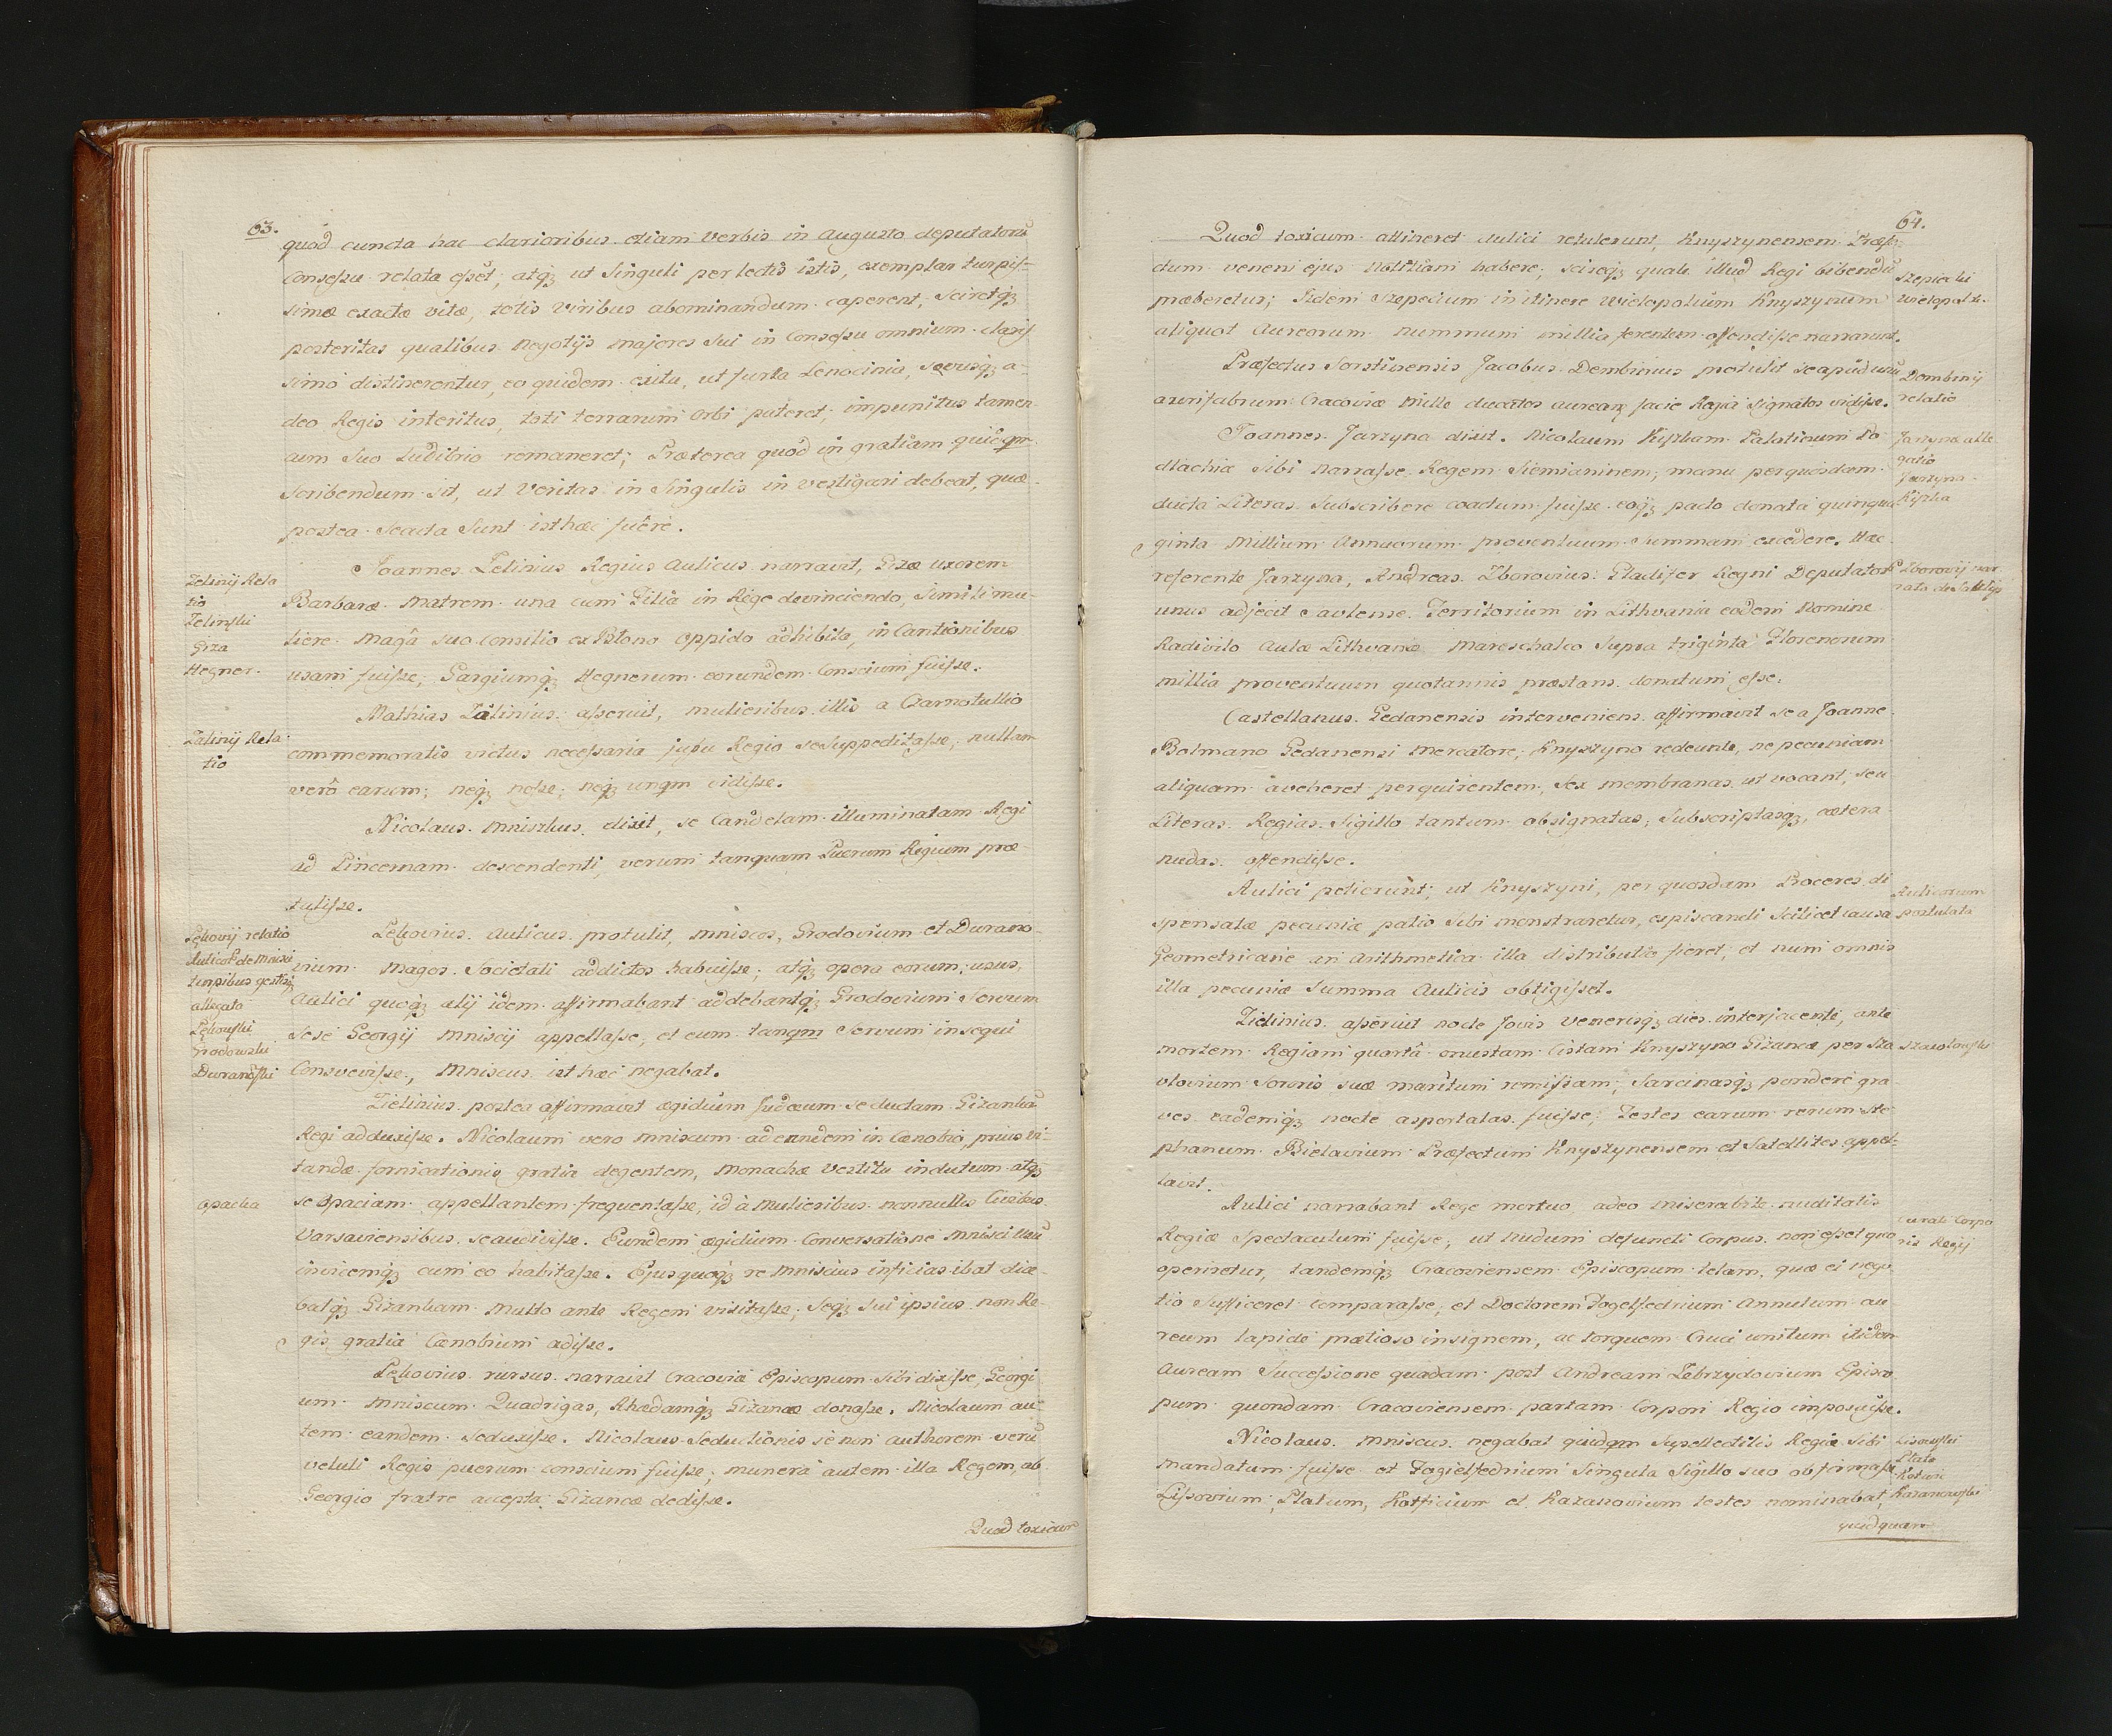 63.
quod cuncta hac clarioribus etiam verbis in augusto deputatorũ
Consessu relata essēt, atq₃ ut Singuli per lectis istis, exemplar turpis-
simæ exactæ vitæ, totis viribus abominandum caperent, sciretq₃
posteritas qualibus Negotijs majores Sui in Consessu omnium claris
simo distinerentur, eo quidem exitu, ut furta Lenocinia, servusq₃ a-
deo Regis interitus, toti terrarum Orbi pateret, impunitus tamen
cum Suo Ludibrio remaneret; Præterea quod in gratiam quicqm
Scribendum sit, ut Veritas in Singulis in vestigari debeat, quæ
postea Secuta Sunt isthæc fuêre.
Joannes Zelinius Regius Aulicus narravit, Gizæ uxorem
Barbaræ Matrem una cum Filia in Rege devinciendo, Simili mu-
liere Maga suo Consilio ex Blono Oppido adhibita, in Cantionibus
usam fuisse, Gargiumq₃ Hegnerum eorundem Conscium fuisse.
Zelinij Rela
tio
Zelinski
Giza
Hegner.
Mathias Zalinius asseruit, mulieribus illis a Czarnotullio
commemoratis victus necessaria jussu Regio se Suppeditasse, nullam
verò earum; neq₃ nosse; neq₃ unqm vidisse.
Zalinij Rela
tio
Nicolaus Mniszkus dixit, se Candelam illuminatam Regi
ad Pincernam descendenti, verum tanquam Puerum Regium præ-
tulisse.
Lekovius Aulicus protulit, Mniscos, Grodovium et Durano-
vium Magos Societati addictos habuisse; atq₃ opera eorum, usus,
Aulici quoq₃ alij idem affirmabant addebantq₃ Grodovium Servum
sese Georgij Mniscij appellasse, et eum tanqm Servum insequi
Consvevisse, Mniscus isthæc negabat.
Lekovij relatio
Aulicor de Mnisci
turpibus gestis
allegata
Lekowski
Grodowski
Duranowski
Zielinius postea affirmavit Ægidium Judæum seductam Gizankã
Regi adduxisse. Nicolaum vero Mniscum ad eandem in Cœnobio, prius vi-
tandæ fornicationis gratia degentem, Monachæ Vestitu indutum atq₃
se Opaciam appellantem frequentasse, id à Mulieribus nonnullis Civibus
Varsaviensibus se audivisse. Eundem Ægidium Conversatione Mnisci usũ
invicemq₃ cum eo habitasse. Ejus quoq₃ re Mniscius inficias ibat dice-
batq₃ Gizankam Multo ante Regem visitasse, Seq₃ sui ipsius non Re-
gis gratia Cœnobium adisse.
Opacka
Lekovius rursus narravit Cracoviæ Episcopum Sibi dixisse, Georgi
um Mniscum Quadrigas, Rhædamq₃ Gizancæ donasse. Nicolaum au-
tem eandem Seduxisse. Nicolaus Seductionis se non authorem verũ
veluti Regis puerum conscium fuisse; munera autem illa Regem, ab
Georgio fratre accepta Gizancæ dedisse.
Quod toxicum
64.
Quod toxicum attineret Aulici retulerunt, Knyszynensem Præfe-
ctum veneni ejus Notitiam habere; scireq₃ quale illud Regi bibendũ
præberetur; Itidem Szepecium in itinere Wielopolium Knyszynum
aliquot Aureorum nummum millia ferentem offendisse narrarunt.
Szepicki
Wielopolski.
Præfectus Sorstinensis Jacobus Dembinius protulit se apud unũ
aurifabrum Cracoviæ Mille ducatos aureæ facie Regia signatos vidisse.
Dembinij
relatio
Joannes Jarzyna dixit. Nicolaum Kiszkam Palatinum Po
dlachiæ Sibi Narrasse, Regem Siemianinem, manu per quosdam
ducta Literas Subscribere coactum fuisse, eoq₃ pacto donata quinqua
ginta Millium Annuorum proventuum Summam excedere. Hæc
referente Jarzyna, Andreas Zborovius Gladifer Regni Deputatorũ
unus adjecit Savlense Territorium in Lithvania eodem Nomine
Radivilo Aulæ Lithvanæ Mareschalco Supra triginta Florenorum
millia proventuum quotannis præstans donatum esse.
Jarzynæ alle
gatio
Jarzyna
Kiszka
Zborovij nar
rata de Savlijs
Castellanus Gedanensis interveniens affirmavit se a Joanne
Bolmano Gedanensi Mercatore, Knyszyno redeunte, ne pecuniam
aliquam aveheret perquirentem, Sex membranas ut vocant, seu
Literas Regias Sigillo tantum obsignatas, Subscriptasq₃, cætera
nudas offendisse.
Aulici petierunt, ut Knyszyni, per quosdam Proceres di
spensatæ pecuniæ patio Sibi monstraretur, expiscandi Scilicet causa
Geometricane an Arithmetica illa distributio fieret, et num omnis
illa pecuniæ Summa Aulicis obtigisset.
Aulicorum
postulata
Zielinius asseruit nocte Jovis Venerisq₃ dies interjacente, ante
mortem Regiam quartâ onustam Cistam Knyszyno Gizancæ per Sza
vlovium Sororis suæ maritum remissam, Sarcinasq₃ pondere gra
ves eademq₃ nocte asportatas fuisse; Testes earum rerum Ste
phanum Bielavium Præfectum Knyszynensem et Satellites appel-
lavit.
Szawlowski
Aulici narrabant Rege mortuo, adeo miserabile nuditatis
Regiæ Spectaculum fuisse, ut nudum defuncti Corpus non esset quo
operiretur, tandemq₃ Cracoviensem Episcopum telam, quæ ei nego
tio Sufficeret comparasse, et Doctorem Fogelfedrium Annulum au
reum lapide prætioso insignem, ac torquem Cruci unitum itidem
Auream Successione quadam post Andream Zebrzydovium Episco
pum quondam Cracoviensem partam Corpori Regio imposuisse.
Curati Corpo
ris Regij
Nicolaus Mniscus negabat quidqm Supellectilis Regiæ Sibi
Mandatum fuisse et Fogielfedrium Singula Sigillo suo obfirmasse
Lissovium, Platum, Kotficium et Kazanovium testes nominabat,
Lisowski
Plato
Kotwic
Kazanowski
quidquam